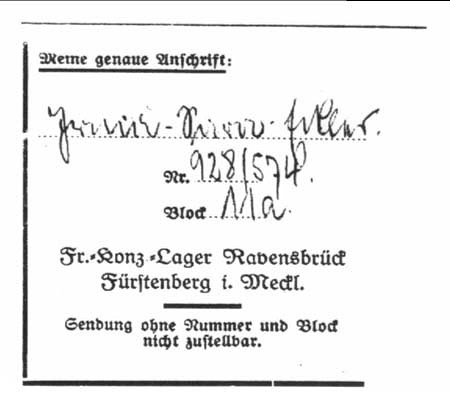 Meine genaue Anschrift:
Nr. 928/574.
Block 11a.
Fr.-Konz.-Lager Ravensbrück
Fürstenberg i. Meckl.
Sendung ohne Nummer und Block
nicht zustellbar.